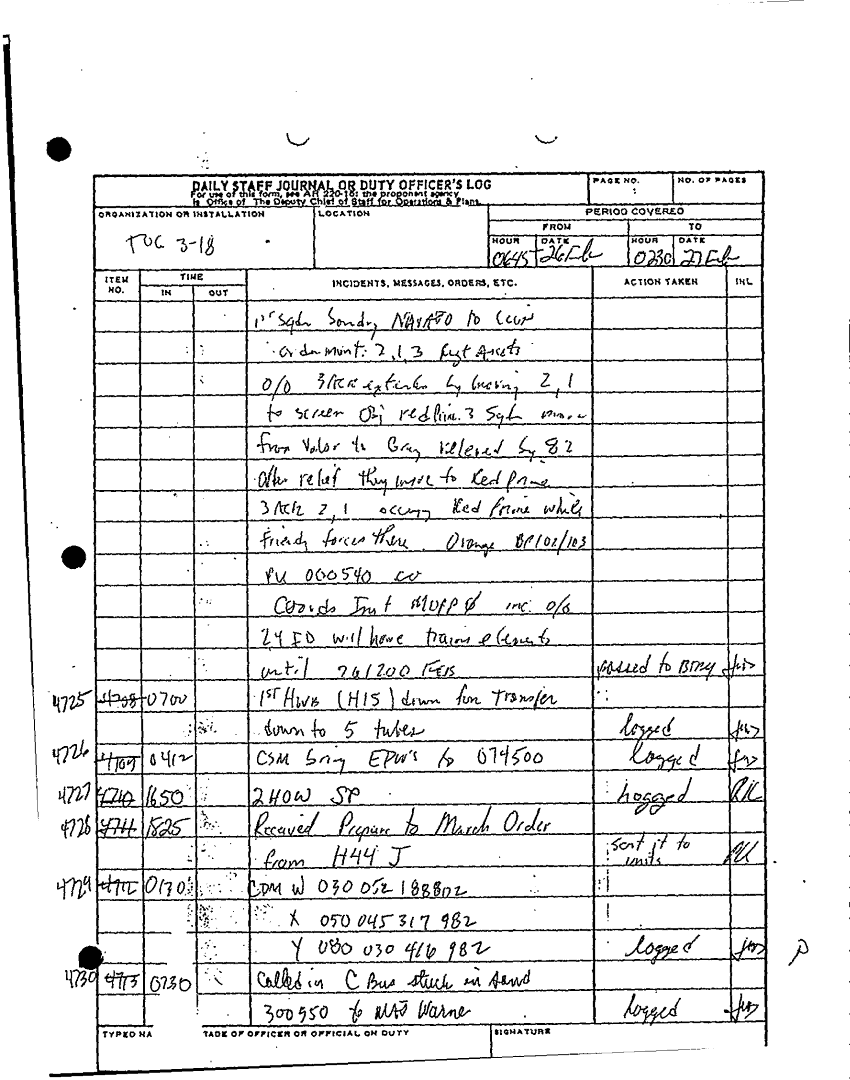 DAILY STAFF JOURNAL OR DUTY OFFICER'S LOG
For use of this form, see AR 220-15; the proponent agency
is Office of The Deputy Chief of Staff for Operations & Plans.
PAGE NO. NO. OF PAGES
ORGANIZATION OR INSTALLATION LOCATION PERIOD COVERED
FROM TO
HOUR DATE HOUR DATE
TOC 3-18 0645 26 Feb 0230 27 Feb
ITEM NO. TIME INCIDENTS, MESSAGES, ORDERS, ETC. ACTION TAKEN INL
IN OUT
1st Sqdn to
2, 1, 3 Rgt Assets
O/O 3ACR by 2, 1
to screen Obj red Prime. 3 Sqdn
from Valor to Gray relieved by 82
After relief they move to Red Prime
3 ACR 2, 1 occupy Red Prime while
friendly forces there. Orange BP102/103
PU 000540
Coords inc O/O
24 ID will have trains elements
until 261200 FEB passed to Btry
4725 0700 1st (H15) down for Transfer
down to 5 tubes logged
4726 4709 0412 CSM bring EPW's to 074500 logged
4727 4710 1650 2 HOW SP logged
4728 4711 1825 Received Prepare to March Order
from H44 J sent it to units
4729 4712 0130 CDM W 030 052 188
X 050 045 317 982
Y 080 030 416 982 logged
4730 4713 0230 Called in C Bus stuck in sand
300950 to MAJ Warne logged
TYPED NA ADE OF OFFICER OR OFFICIAL ON DUTY SIGNATURE